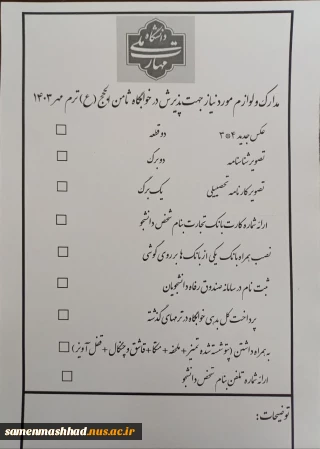 دانشگاه
ملی
مهارت
مدارک و لوازم مورد نیاز جهت پذیرش در خوابگاه ثامن الحجج (ع) ترم مهر ۱۴۰۳
عکس جدید ۴*۳ دو قطعه
تصویر شناسنامه دو برگ
تصویر کارنامه تحصیلی یک برگ
ارائه شماره کارت بانک تجارت بنام شخص دانشجو
نصب همراه بانک یکی از بانک ها بر روی گوشی
ثبت نام در سامانه صندوق رفاه دانشجویان
پرداخت کل بدهی خوابگاه در ترمهای گذشته
به همراه داشتن (پتو شسته شده تمیز + ملحفه + متکا + قاشق و چنگال + قفل آویز)
ارائه شماره تلفن بنام شخص دانشجو
توضیحات:
samenmashhad.nus.ac.ir